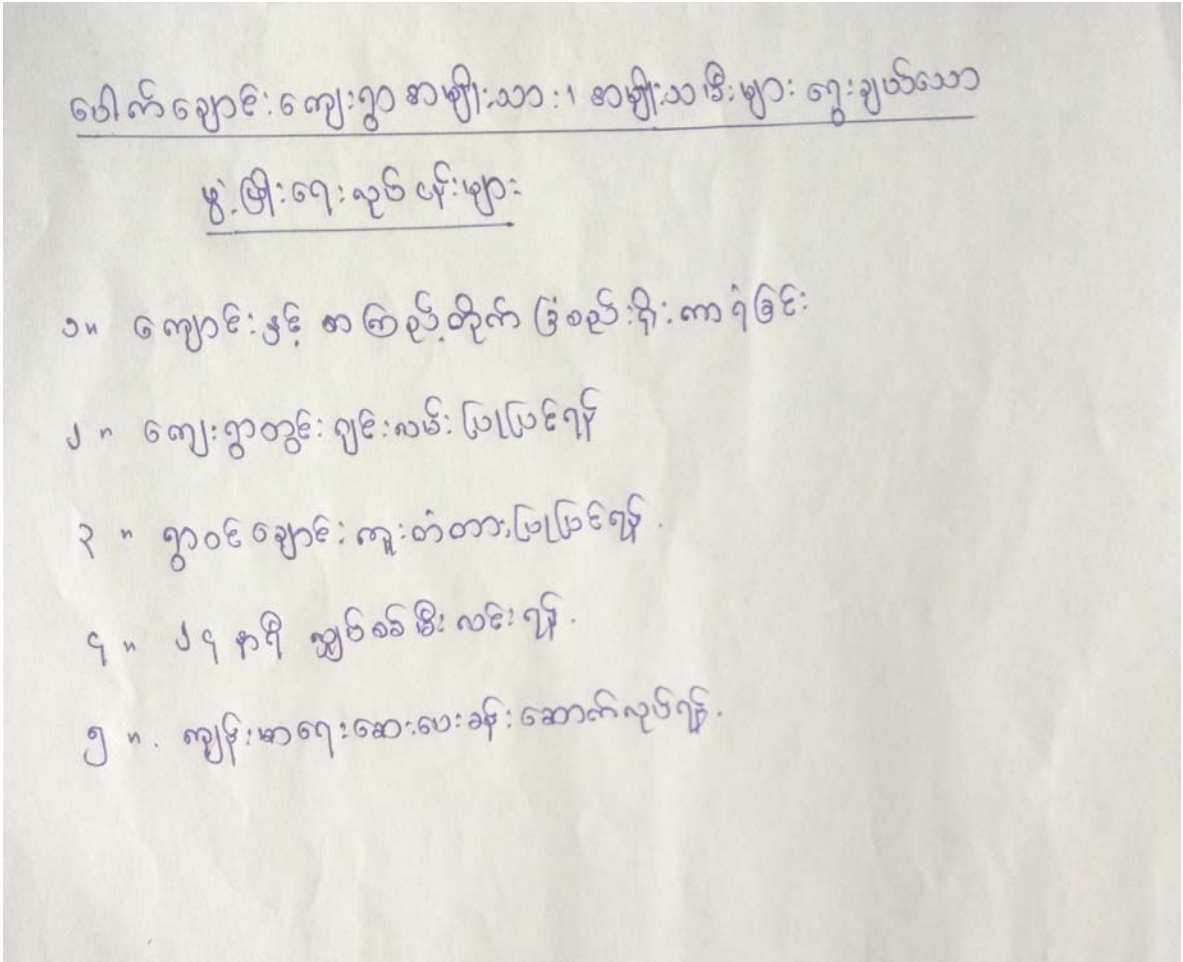 ပေါက်ချောင်းကျေးရွာ အမျိုးသား၊ အမျိုးသမီးများ ရွေးချယ်သော
ဖွံ့ဖြိုးရေးလုပ်ငန်းများ
၁။ ကျောင်းနှင့် စာကြည့်တိုက် ခြံစည်းရိုးကာရံခြင်း
၂။ ကျေးရွာတွင်းချင်းလမ်းပြုပြင်ရန်
၃။ ရွာဝင်ချောင်းကူးတံတားပြုပြင်ရန်.
၄။ ၂၄ နာရီ လျှပ်စစ်မီးလင်းရန်.
၅။. ကျန်းမာရေးဆေးပေးခန်းဆောက်လုပ်ရန်.